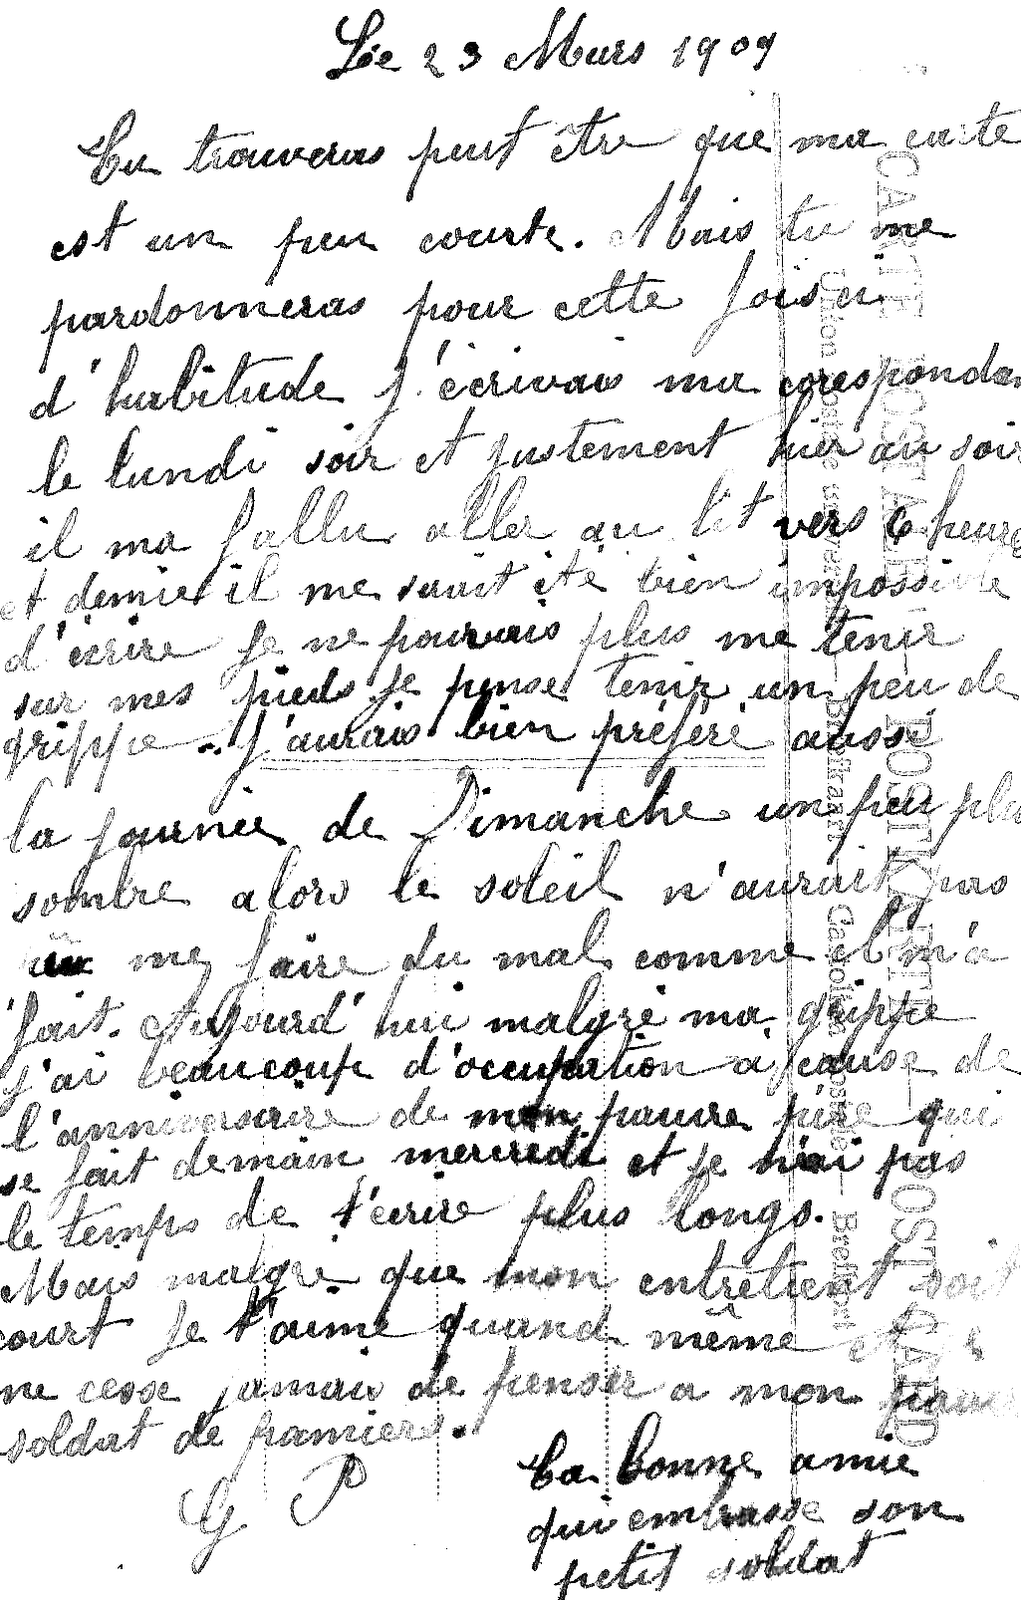 Le 23 Mars 1909
Tu trouveras peut être que ma carte
est un peu courte. Mais tu me
pardonneras pour cette fois
d'habitude j'écrivais ma corespondan
le lundi soir et justement hier au soir
il ma fallu aller au lit vers 6 heures
et demie il me serait été bien impossible
d'écrire je ne pouvais plus me tenir
sur mes pieds je pense tenir un peu de
grippe. J'aurais bien préféré aussi
la journée de Dimanche un peu plus
sombre alors le soleil n'aurait pas
me faire du mal comme il m'a
fait. Aujourd'hui malgré ma grippe
j'ai beaucoup d'occupation à cause de
l'anniversaire de mon pauvre père qui
se fait demain mercredi et je n'ai pas
le temps de t'écrire plus longs.
Mais malgré que mon entretient soit
court je t'aime quand même et
ne cesse jamais de penser a mon
soldat de pamiers.
G P
Ta bonne amie
qui embrasse son
petit soldat
CARTE POSTALE — POSTKARTE — POST CARD